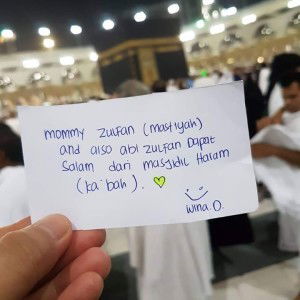 mommy zulfan (mastiyah)
and also abi zulfan Dapat
Salam dari masjidil Haram
(ka'bah). 💛
wina.O.